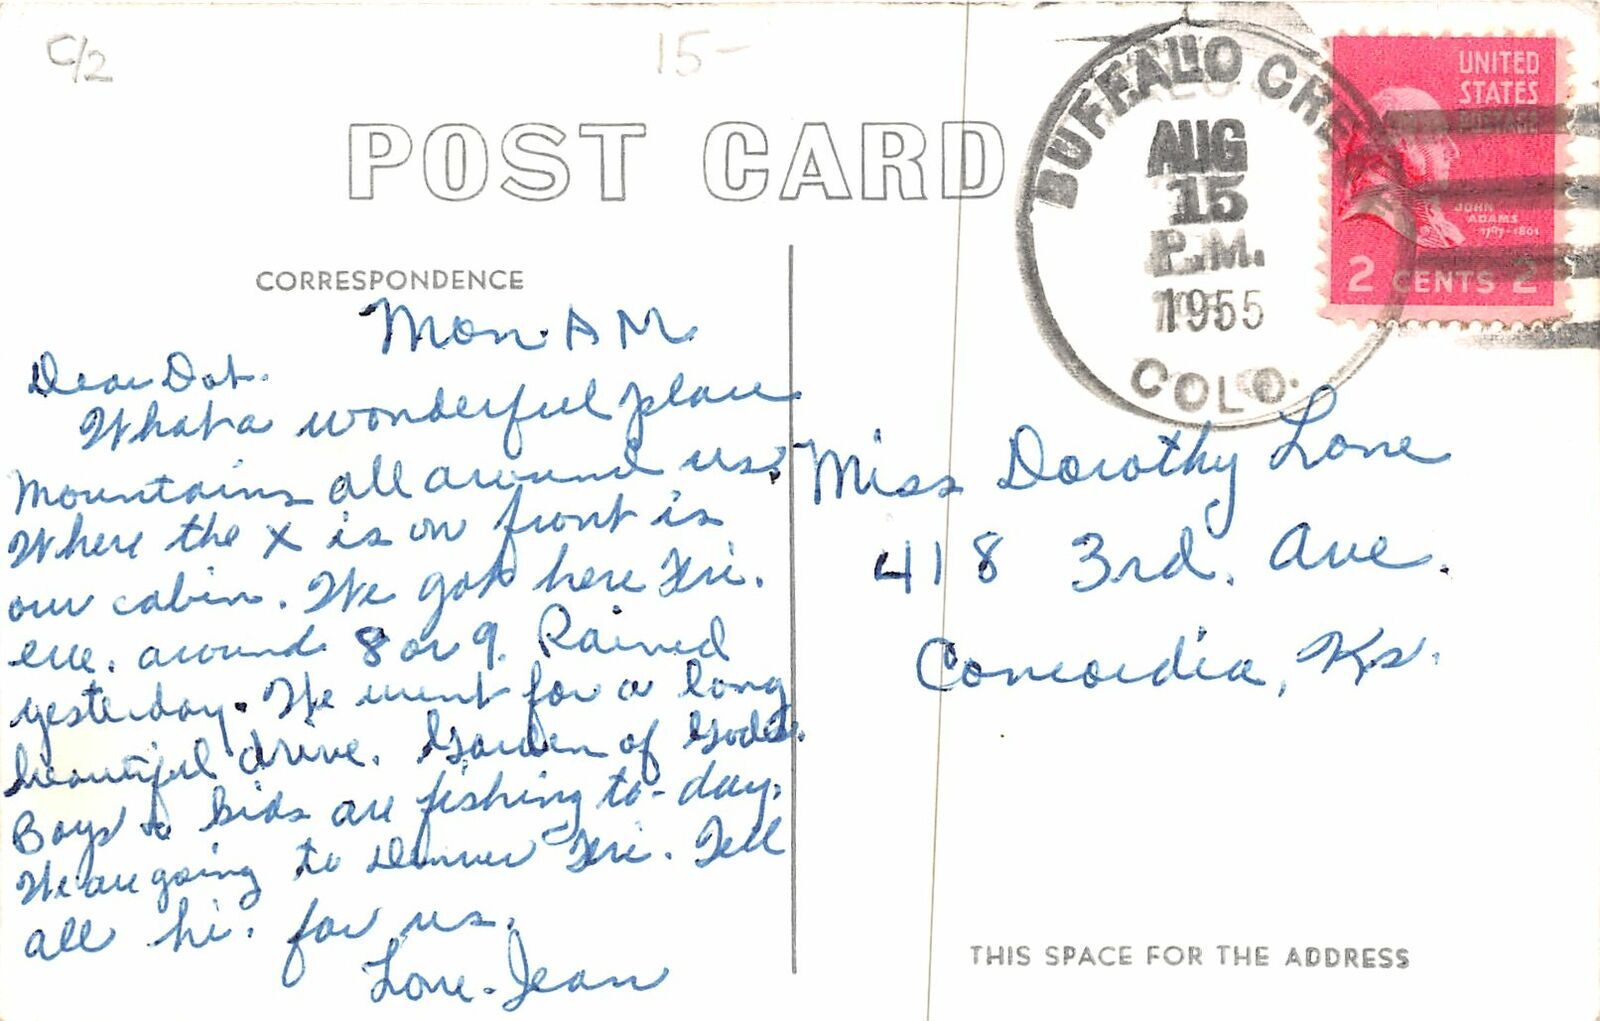 C/2
15-
POST CARD
BUFFALO CREEK
AUG
15
P.M.
1955
COLO.
UNITED
STATES
POSTAGE
JOHN
ADAMS
1797-1801
2 CENTS 2
CORRESPONDENCE
Mon. A M
Dear Dot.
What a wonderful place
Mountains all around us.
Where the x is on front is
our cabin. We got here Fri.
eve. around 8 or 9. Rained
yesterday. We went for a long
beautiful drive. Garden of Gods.
Boys & kids are fishing to-day.
We are going to Denver Fri. Tell
all hi. for us.
Love. Jean
Miss Dorothy Lone
418 3rd. Ave.
Concordia, Ks.
THIS SPACE FOR THE ADDRESS